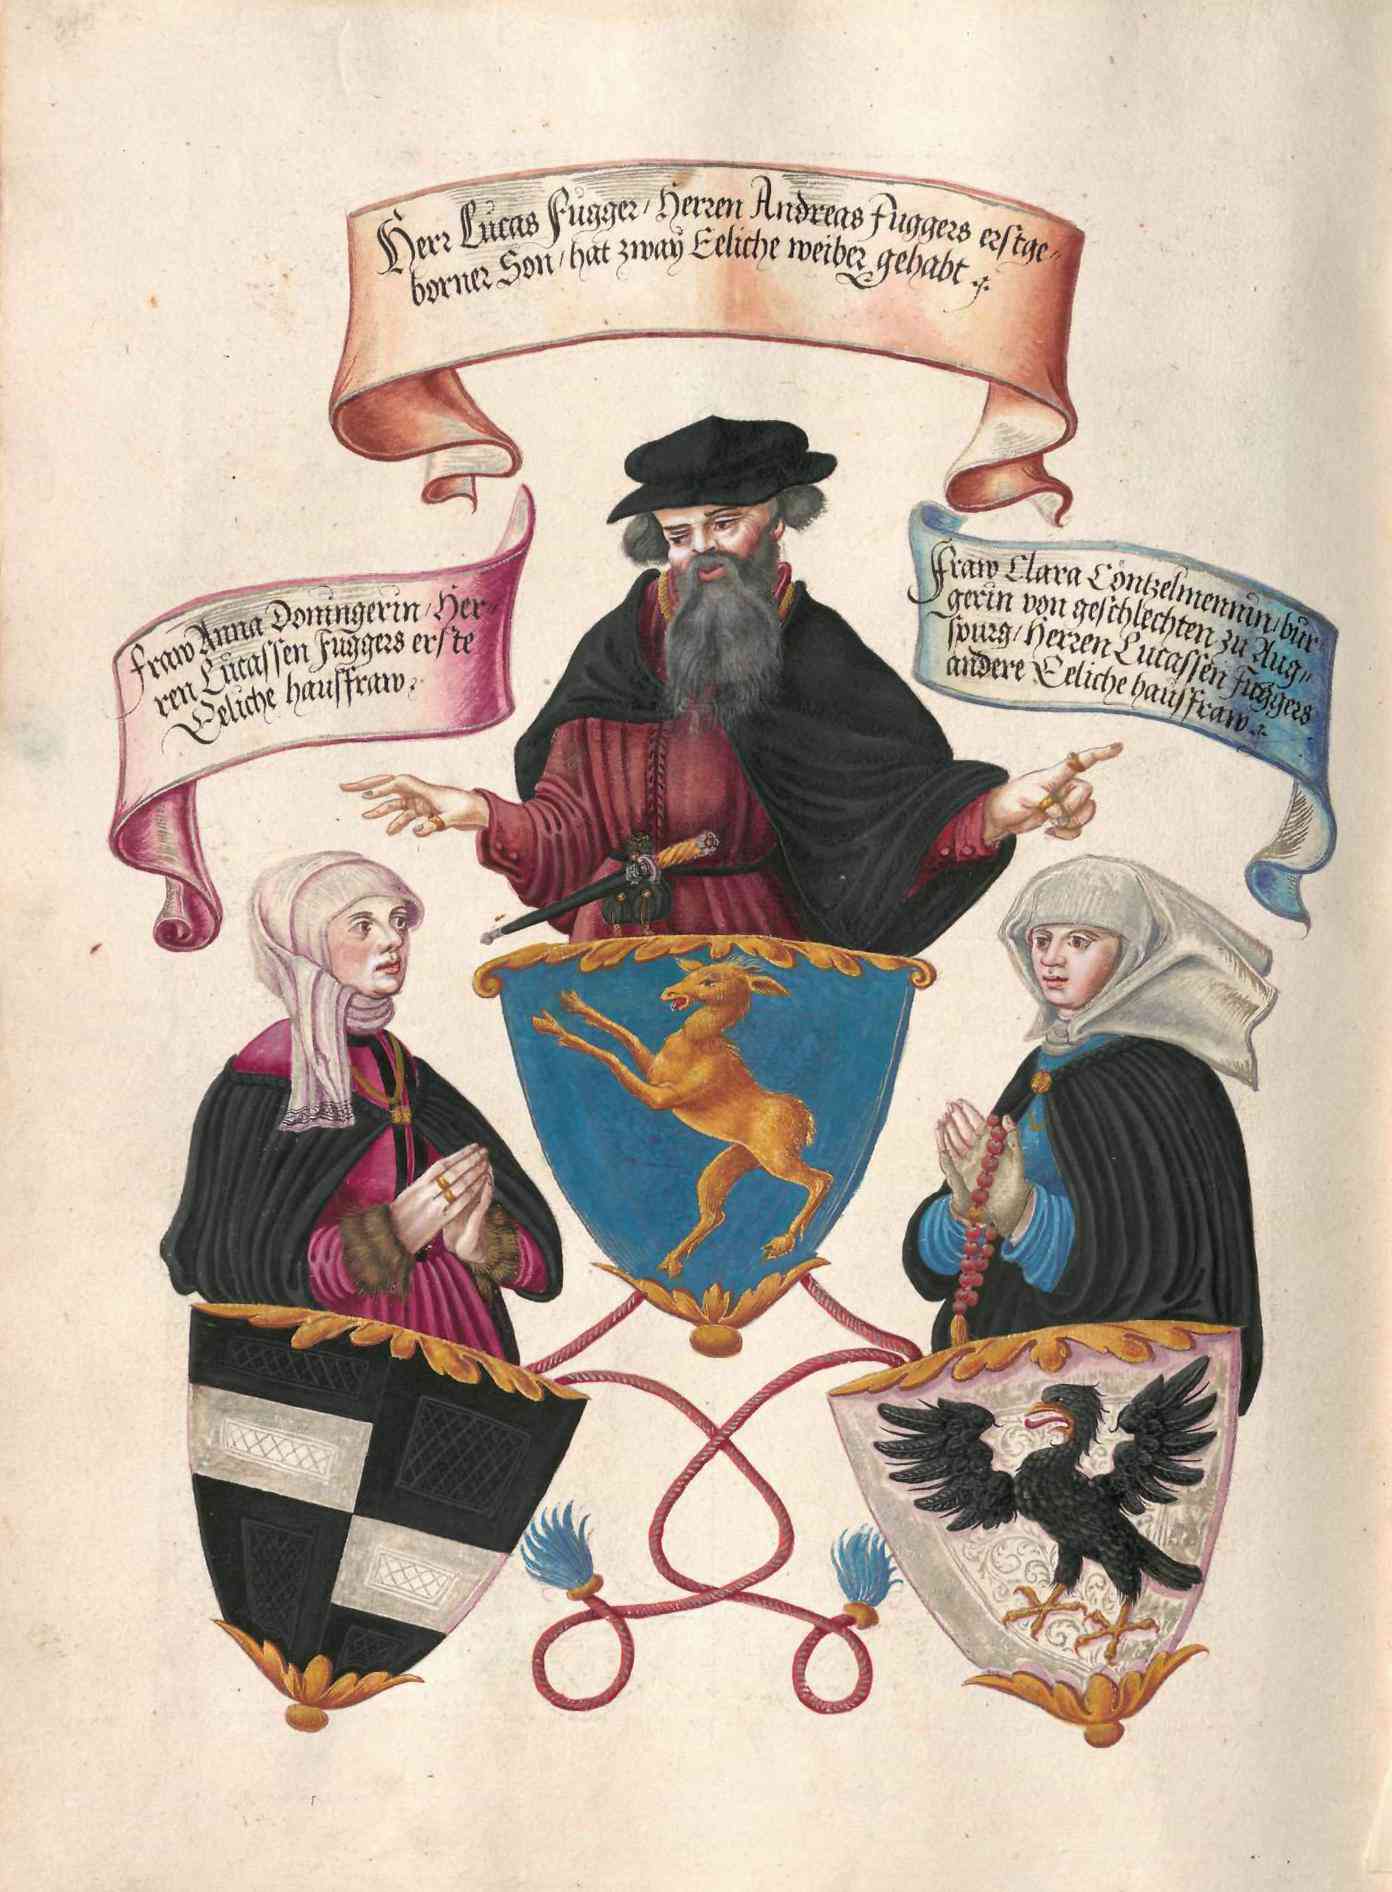 Herr Lucas Fugger / Herren Andreas Fuggers erstge-
borner Son / hat zway Eeliche weiber gehabt .
Fraw Anna Doningerin / Her-
ren Lucassen Fuggers erste
Eeliche hausfraw .
Fraw Clara Contzelmennin / bur
gerin von geschlechten zu Aug-
spurg / Herren Lucassen Fuggers
andere Eeliche hausfraw .